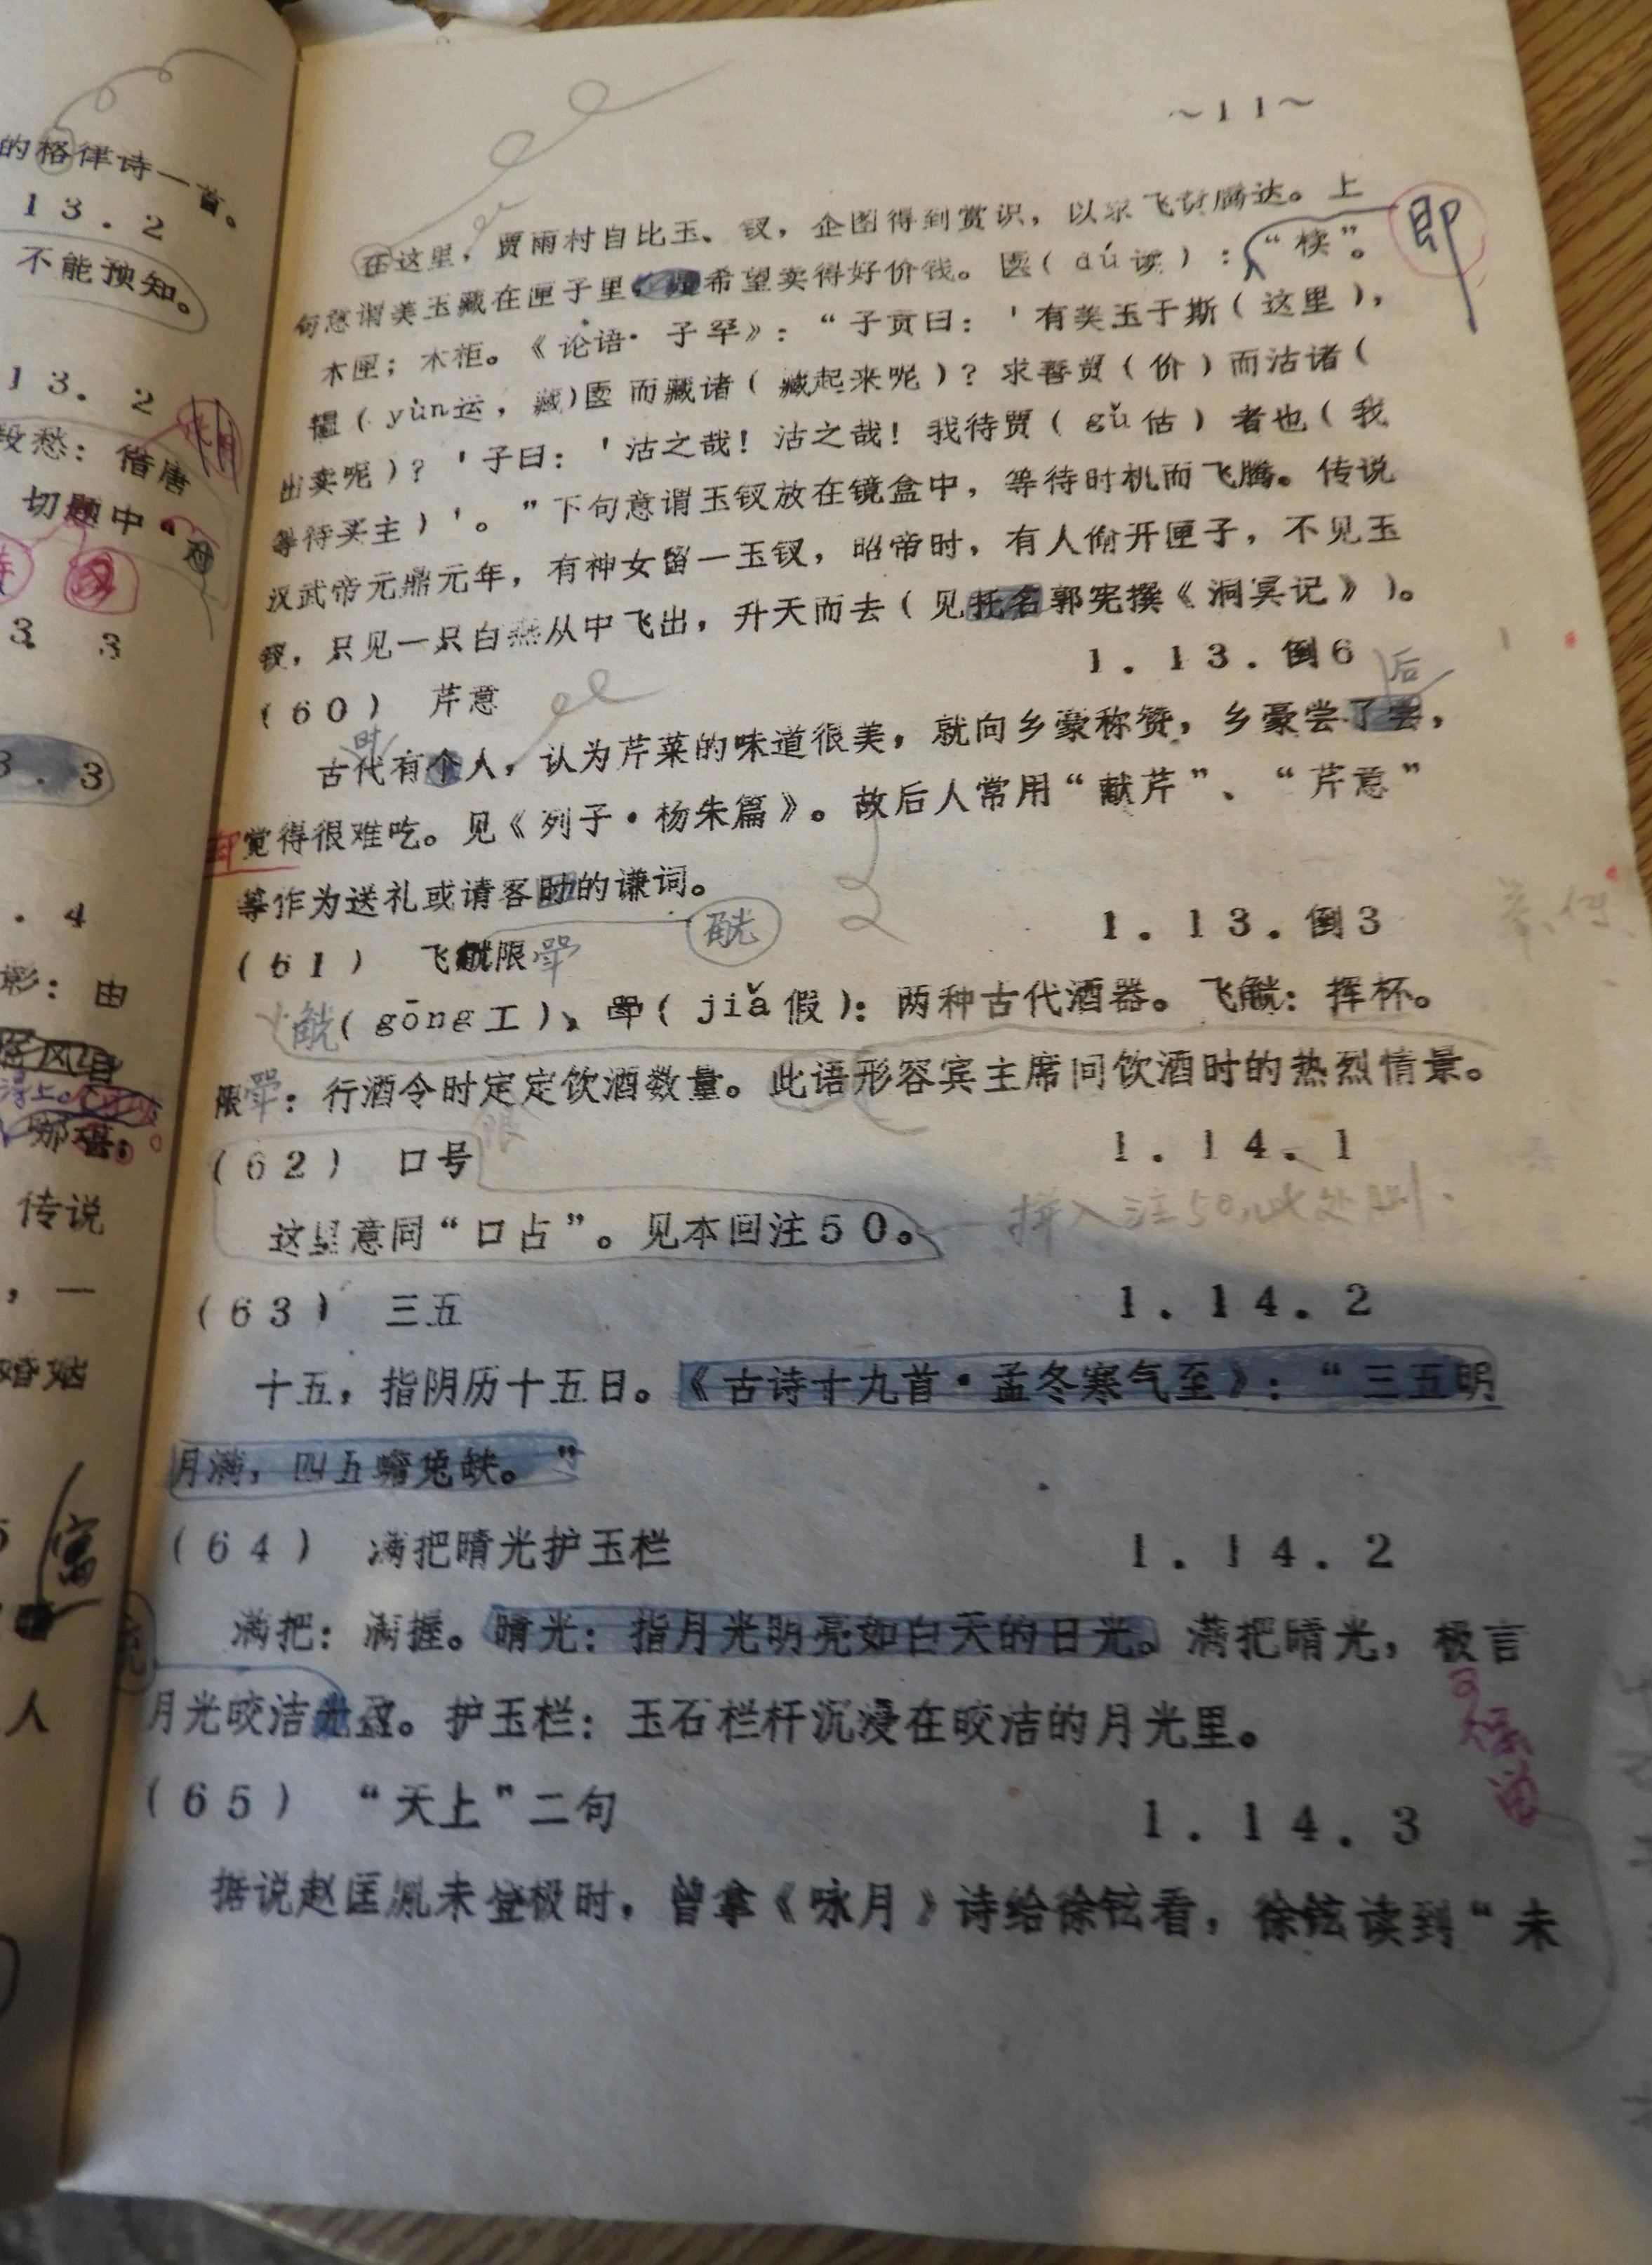 的格律诗一首。
13.2
不能预知。
13.2
愁：借唐
切题中“
3 3
3.3
.4
影：由
哪
传说
，一
婚姻
富
人
～11～
在这里，贾雨村自比玉、钗，企图得到赏识，以求飞黄腾达。上
即
句意谓美玉藏在匣子里，希望卖得好价钱。匵（dú读）：“椟”。
木匣；木柜。《论语·子罕》：“子贡曰：'有美玉于斯（这里），
韫（yùn运，藏）匵而藏诸（藏起来呢）？求善贾（价）而沽诸（
出卖呢）？'子曰：'沽之哉！沽之哉！我待贾（gǔ估）者也（我
等待买主）'。”下句意谓玉钗放在镜盒中，等待时机而飞腾。传说
汉武帝元鼎元年，有神女留一玉钗，昭帝时，有人偷开匣子，不见玉
钗，只见一只白燕从中飞出，升天而去（见托名郭宪撰《洞冥记》）。
（60） 芹意 1.13.倒6
时 后
古代有个人，认为芹菜的味道很美，就向乡豪称赞，乡豪尝了尝，
觉得很难吃。见《列子·杨朱篇》。故后人常用“献芹”、“芹意”
等作为送礼或请客时的谦词。
（61） 飞觥限斝 觥 1.13.倒3
觥（gōng工）、斝（jiǎ假）：两种古代酒器。飞觥：挥杯。
限斝：行酒令时定定饮酒数量。此语形容宾主席间饮酒时的热烈情景。
限
（62） 口号 1.14.1
这里意同“口占”。见本回注50。 拼入注50，此处删.
（63） 三五 1.14.2
十五，指阴历十五日。《古诗十九首·孟冬寒气至》：“三五明
月满，四五蟾兔缺。”
（64） 满把晴光护玉栏 1.14.2
满把：满握。晴光：指月光明亮如白天的日光。满把晴光，极言
月光皎洁光盈。护玉栏：玉石栏杆沉浸在皎洁的月光里。
（65） “天上”二句 1.14.3
据说赵匡胤未登极时，曾拿《咏月》诗给徐铉看，徐铉读到“未